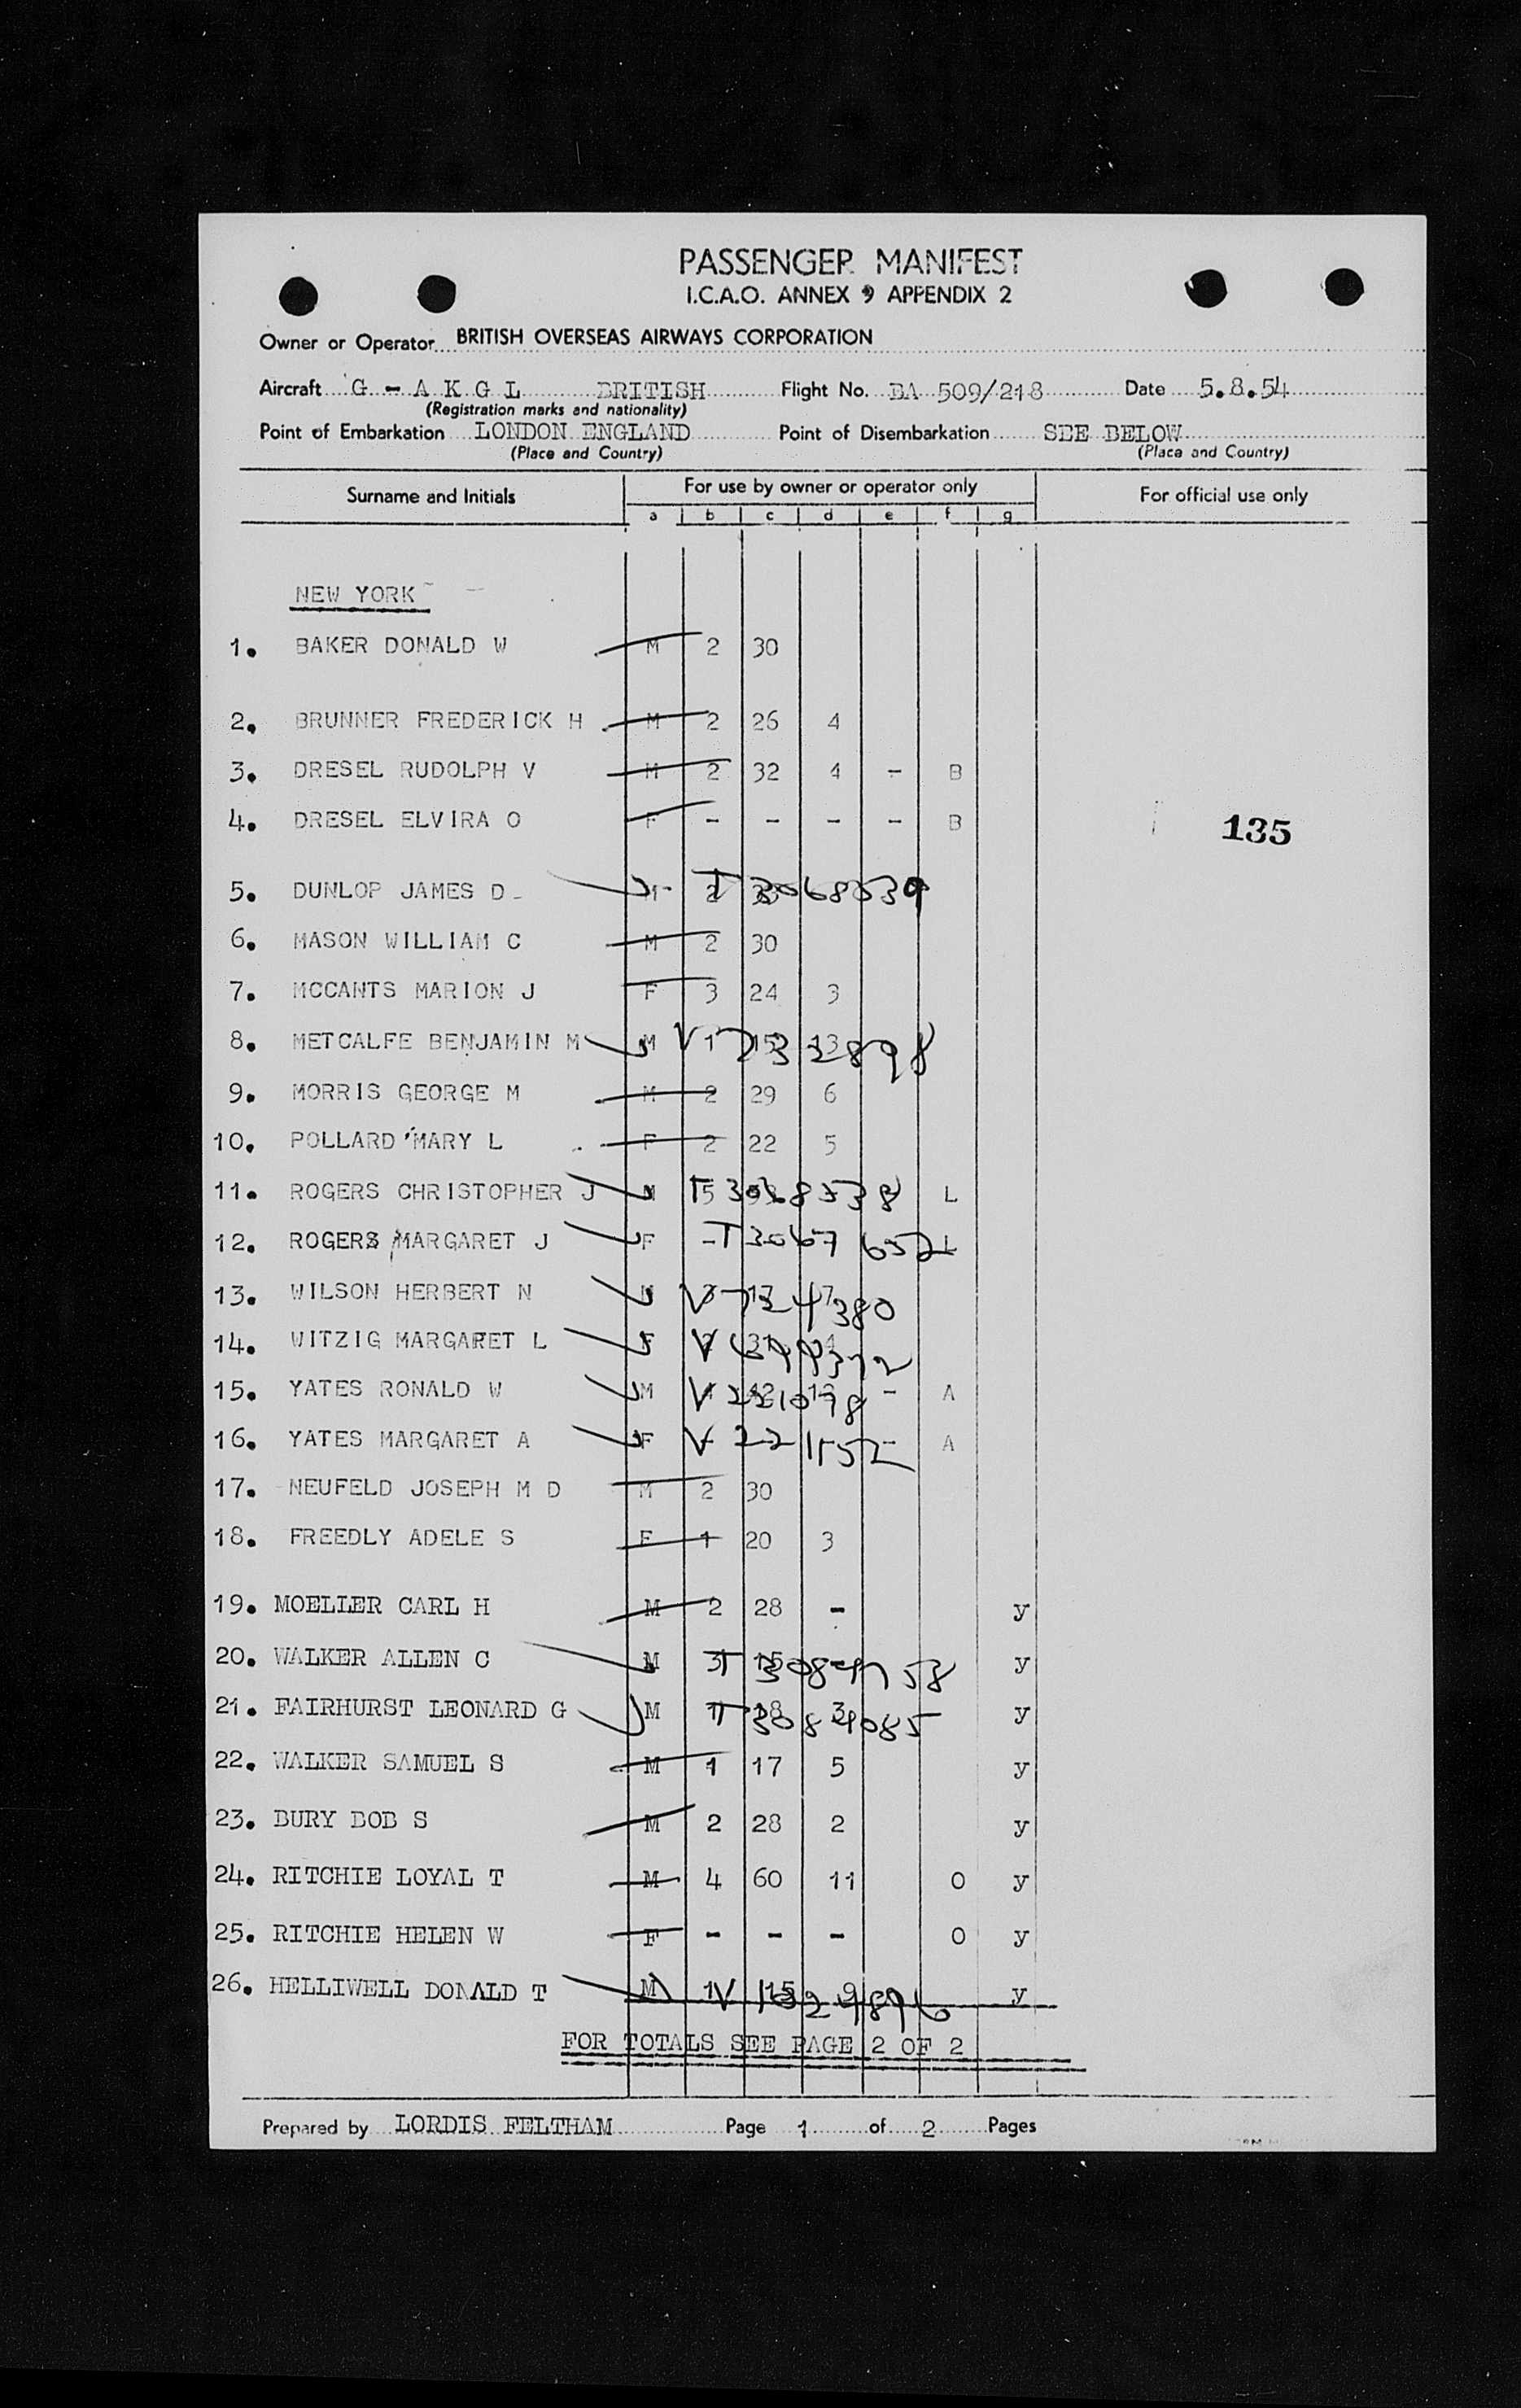 PASSENGER MANIFEST
I.C.A.O. ANNEX 9 APPENDIX 2
Owner or Operator BRITISH OVERSEAS AIRWAYS CORPORATION
Aircraft G - A K G L BRITISH Flight No. BA 509/218 Date 5.8.54
(Registration marks and nationality)
Point of Embarkation LONDON ENGLAND Point of Disembarkation SEE BELOW
(Place and Country) (Place and Country)
Surname and Initials For use by owner or operator only For official use only
a b c d e f g
NEW YORK
1. BAKER DONALD W M 2 30
2. BRUNNER FREDERICK H M 2 26 4
3. DRESEL RUDOLPH V M 2 32 4 - B
4. DRESEL ELVIRA O F - - - - B
135
5. DUNLOP JAMES D M 2 T 3068539
6. MASON WILLIAM C M 2 30
7. MCCANTS MARION J F 3 24 3
8. METCALFE BENJAMIN M M 1 15 13 V
9. MORRIS GEORGE M M 2 29 6
10. POLLARD MARY L F 2 22 5
11. ROGERS CHRISTOPHER J M 5 T 3068538 L
12. ROGERS MARGARET J F - T 3067652 L
13. WILSON HERBERT N M V 724380
14. WITZIG MARGARET L F V
15. YATES RONALD W M V 221078 - A
16. YATES MARGARET A F V 221152 - A
17. NEUFELD JOSEPH M D M 2 30
18. FREEDLY ADELE S F 1 20 3
19. MOELLER CARL H M 2 28 - y
20. WALKER ALLEN C M 3 T y
21. FAIRHURST LEONARD G M 1 18 T y
22. WALKER SAMUEL S M 1 17 5 y
23. BURY BOB S M 2 28 2 y
24. RITCHIE LOYAL T M 4 60 11 O y
25. RITCHIE HELEN W F - - - O y
26. HELLIWELL DONALD T M 1 15 9 V y
FOR TOTALS SEE PAGE 2 OF 2
Prepared by LORDIS FELTHAM Page 1 of 2 Pages